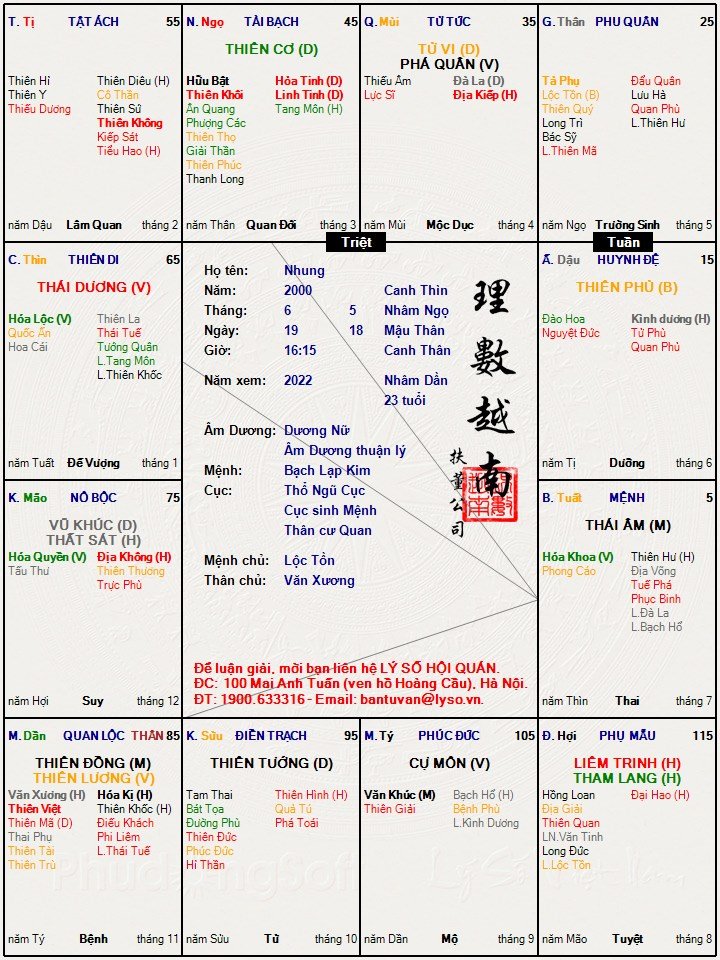 T. Tị TẬT ÁCH 55
Thiên Hỉ Thiên Diêu (H)
Thiên Y Cô Thần
Thiếu Dương Thiên Sứ
Thiên Không
Kiếp Sát
Tiểu Hao (H)
năm Dậu Lâm Quan tháng 2
N. Ngọ TÀI BẠCH 45
THIÊN CƠ (D)
Hữu Bật Hỏa Tinh (D)
Thiên Khôi Linh Tinh (D)
Ân Quang Tang Môn (H)
Phượng Các
Thiên Thọ
Giải Thần
Thiên Phúc
Thanh Long
năm Thân Quan Đới tháng 3
Q. Mùi TỬ TỨC 35
TỬ VI (D)
PHÁ QUÂN (V)
Thiếu Âm Đà La (D)
Lực Sĩ Địa Kiếp (H)
năm Mùi Mộc Dục tháng 4
G. Thân PHU QUÂN 25
Tả Phụ Đẩu Quân
Lộc Tồn (B) Lưu Hà
Thiên Quý Quan Phù
Long Trì L.Thiên Hư
Bác Sỹ
L.Thiên Mã
năm Ngọ Trường Sinh tháng 5
Triệt
Tuần
C. Thìn THIÊN DI 65
THÁI DƯƠNG (V)
Hóa Lộc (V) Thiên La
Quốc Ấn Thái Tuế
Hoa Cái Tướng Quân
L.Tang Môn
L.Thiên Khốc
năm Tuất Đế Vượng tháng 1
Họ tên: Nhung
Năm: 2000 Canh Thìn
Tháng: 6 5 Nhâm Ngọ
Ngày: 19 18 Mậu Thân
Giờ: 16:15 Canh Thân
Năm xem: 2022 Nhâm Dần
23 tuổi
Âm Dương: Dương Nữ
Âm Dương thuận lý
Mệnh: Bạch Lạp Kim
Cục: Thổ Ngũ Cục
Cục sinh Mệnh
Thân cư Quan
Mệnh chủ: Lộc Tồn
Thân chủ: Văn Xương
理數越南
扶董公司
Để luận giải, mời bạn liên hệ LÝ SỐ HỘI QUÁN.
ĐC: 100 Mai Anh Tuấn (ven hồ Hoàng Cầu), Hà Nội.
ĐT: 1900.633316 - Email: bantuvan@lyso.vn.
Ấ. Dậu HUYNH ĐỆ 15
THIÊN PHỦ (B)
Đào Hoa Kình dương (H)
Nguyệt Đức Tử Phù
Quan Phủ
năm Tị Dưỡng tháng 6
K. Mão NÔ BỘC 75
VŨ KHÚC (D)
THẤT SÁT (H)
Hóa Quyền (V) Địa Không (H)
Tấu Thư Thiên Thương
Trực Phù
năm Hợi Suy tháng 12
B. Tuất MỆNH 5
THÁI ÂM (M)
Hóa Khoa (V) Thiên Hư (H)
Phong Cáo Địa Võng
Tuế Phá
Phục Binh
L.Đà La
L.Bạch Hổ
năm Thìn Thai tháng 7
M. Dần QUAN LỘC THÂN 85
THIÊN ĐỒNG (M)
THIÊN LƯƠNG (V)
Văn Xương (H) Hóa Kị (H)
Thiên Việt Thiên Khốc (H)
Thiên Mã (D) Điếu Khách
Thai Phụ Phi Liêm
Thiên Tài L.Thái Tuế
Thiên Trù
năm Tý Bệnh tháng 11
K. Sửu ĐIỀN TRẠCH 95
THIÊN TƯỚNG (D)
Tam Thai Thiên Hình (H)
Bát Tọa Quả Tú
Đường Phù Phá Toái
Thiên Đức
Phúc Đức
Hỉ Thần
năm Sửu Tử tháng 10
M. Tý PHÚC ĐỨC 105
CỰ MÔN (V)
Văn Khúc (M) Bạch Hổ (H)
Thiên Giải Bệnh Phù
L.Kình Dương
năm Dần Mộ tháng 9
Đ. Hợi PHỤ MẪU 115
LIÊM TRINH (H)
THAM LANG (H)
Hồng Loan Đại Hao (H)
Địa Giải
Thiên Quan
LN.Văn Tinh
Long Đức
L.Lộc Tồn
năm Mão Tuyệt tháng 8